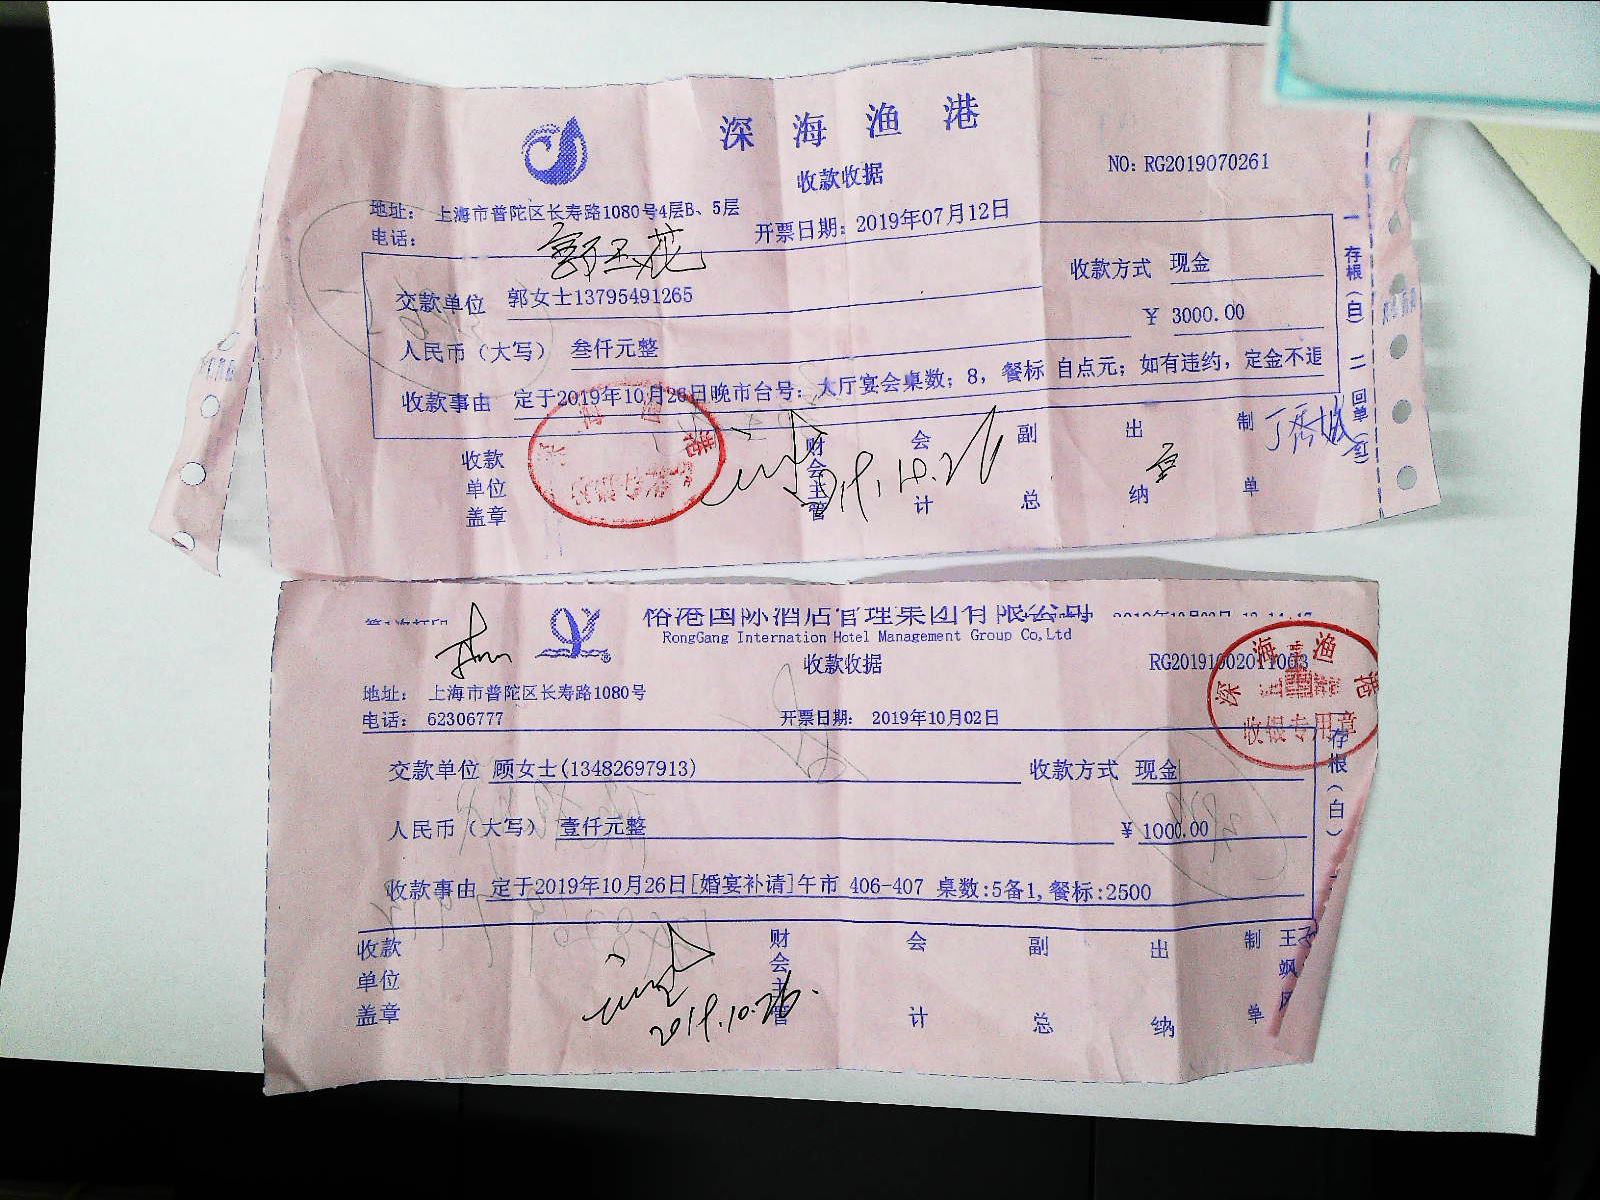 深海渔港
收款收据
NO: RG2019070261
地址： 上海市普陀区长寿路1080号4层B、5层
电话：
开票日期：2019年07月12日
郭玉花
交款单位 郭女士13795491265
收款方式 现金
人民币（大写） 叁仟元整
¥ 3000.00
收款事由 定于2019年10月26日晚市台号：大厅宴会桌数；8，餐标 自点元；如有违约，定金不退
收款单位盖章
财会主管
会计
副总
出纳
制单
2019.10.26
一 存根（白） 二 回单（红）
裕港国际酒店管理集团有限公司
RongGang Internation Hotel Management Group Co,Ltd
收款收据
RG20191002011003
深海渔港
收银专用章
地址： 上海市普陀区长寿路1080号
电话： 62306777
开票日期： 2019年10月02日
交款单位 顾女士(13482697913)
收款方式 现金
人民币（大写） 壹仟元整
¥ 1000.00
收款事由 定于2019年10月26日[婚宴补请]午市 406-407 桌数:5备1,餐标:2500
收款单位盖章
财会主管
会计
副总
出纳
制单
2019.10.26.
存根（白）